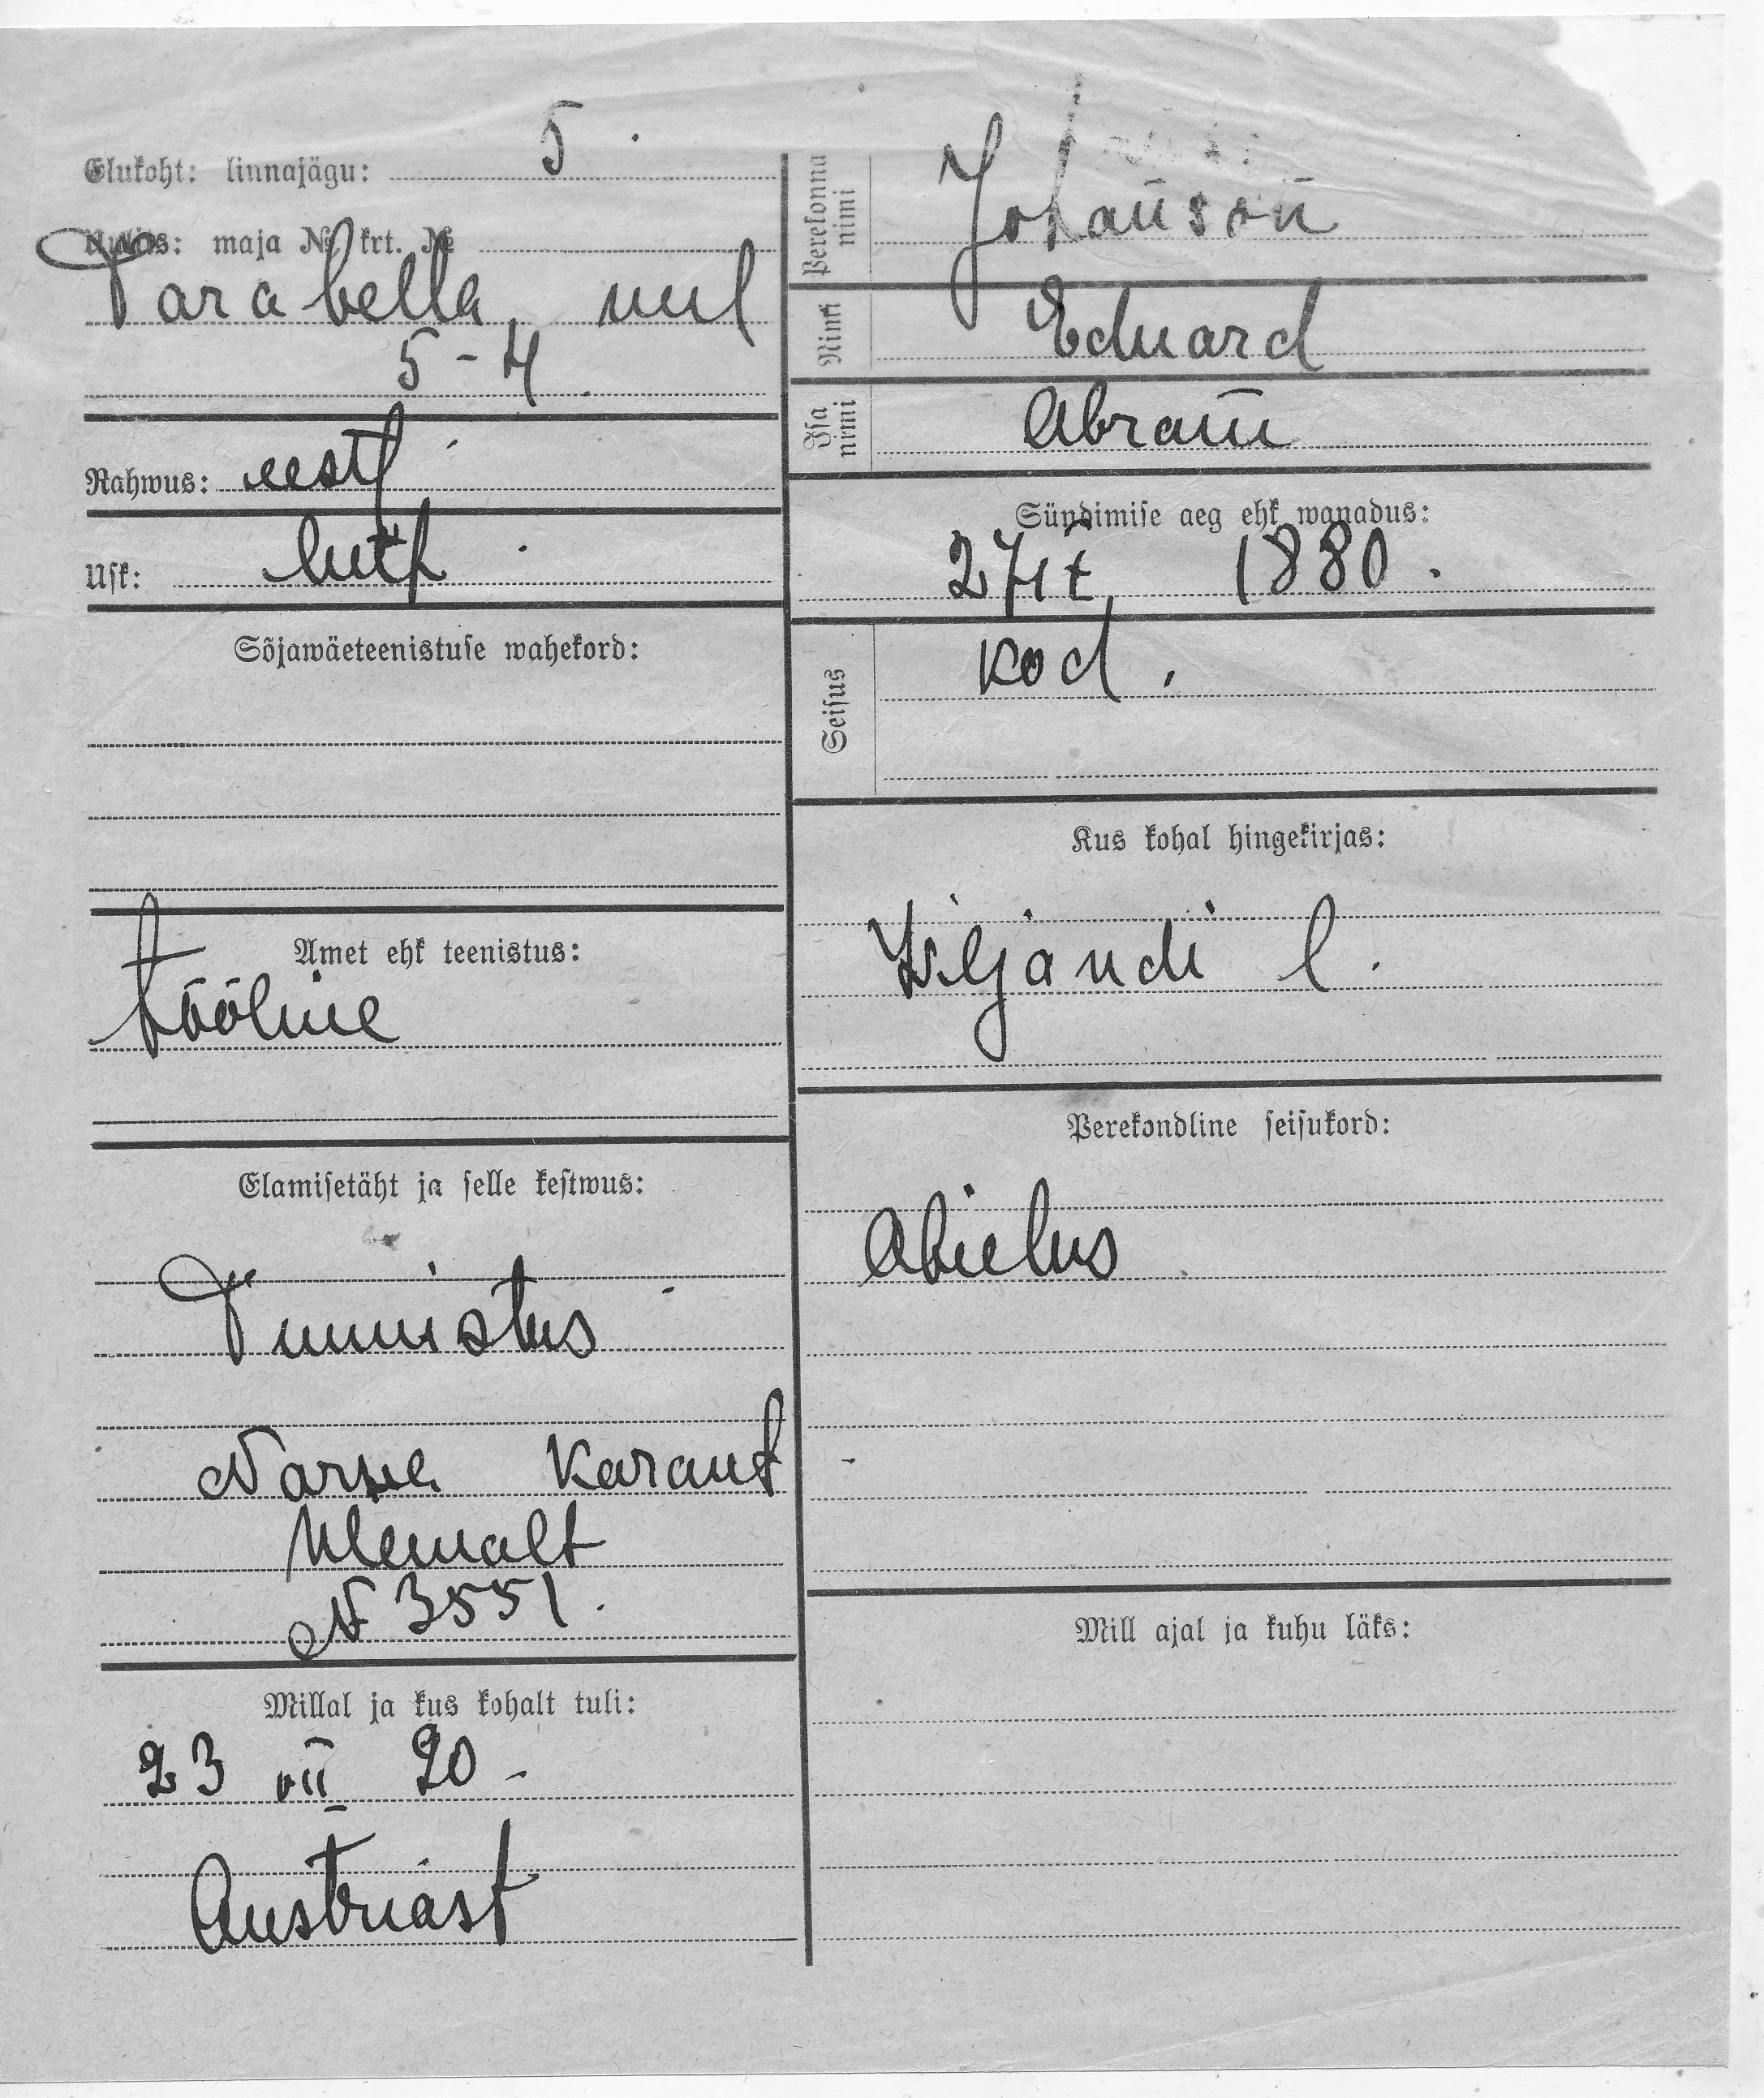 Elukoht: linnajägu: 5.
maja № krt. №
Parabella, uul
5-4.
Rahwus: eesti
Usk: luth.
Sõjawäeteenistuse wahekord:
Amet ehk teenistus:
tööline
Elamisetäht ja selle kestwus:
Tunnistus
Narwa Karant
Ulemalt
N 3551.
Millal ja kus kohalt tuli:
23 VII 20 -
Austriast
Perekonna nimi
Johanson
Nimi
Eduard
Isa nimi
Abram
Sündimise aeg ehk wanadus:
1880.
Seisus
kod.
Kus kohal hingekirjas:
Wiljandi l.
Perekondline seisukord:
Abielus
Mill ajal ja kuhu läks: